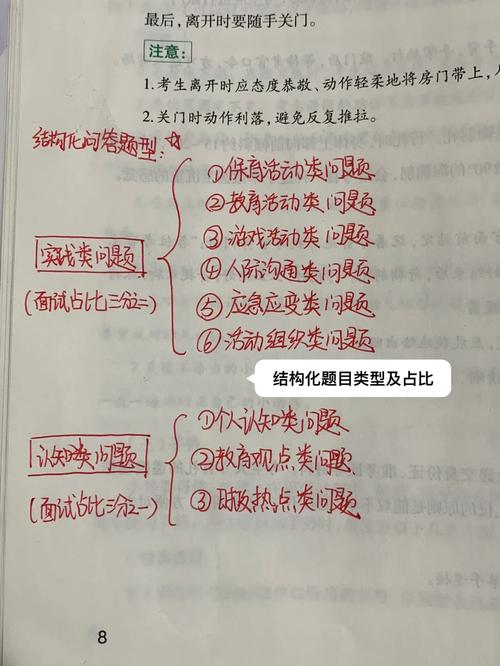 最后，离开时要随手关门。
注意：
1.考生离开时应态度恭敬、动作轻柔地将房门带上，
2.关门时动作利落，避免反复推拉。
结构化问答题型：☆
实战类问题
(面试占比三分之二)
①保育活动类问题
②教育活动类问题
③游戏活动类问题
④人际沟通类问题
⑤应急应变类问题
⑥活动组织类问题
结构化题目类型及占比
认知类问题
(面试占比三分之一)
①个人认知类问题
②教育观点类问题
③时政热点类问题
8